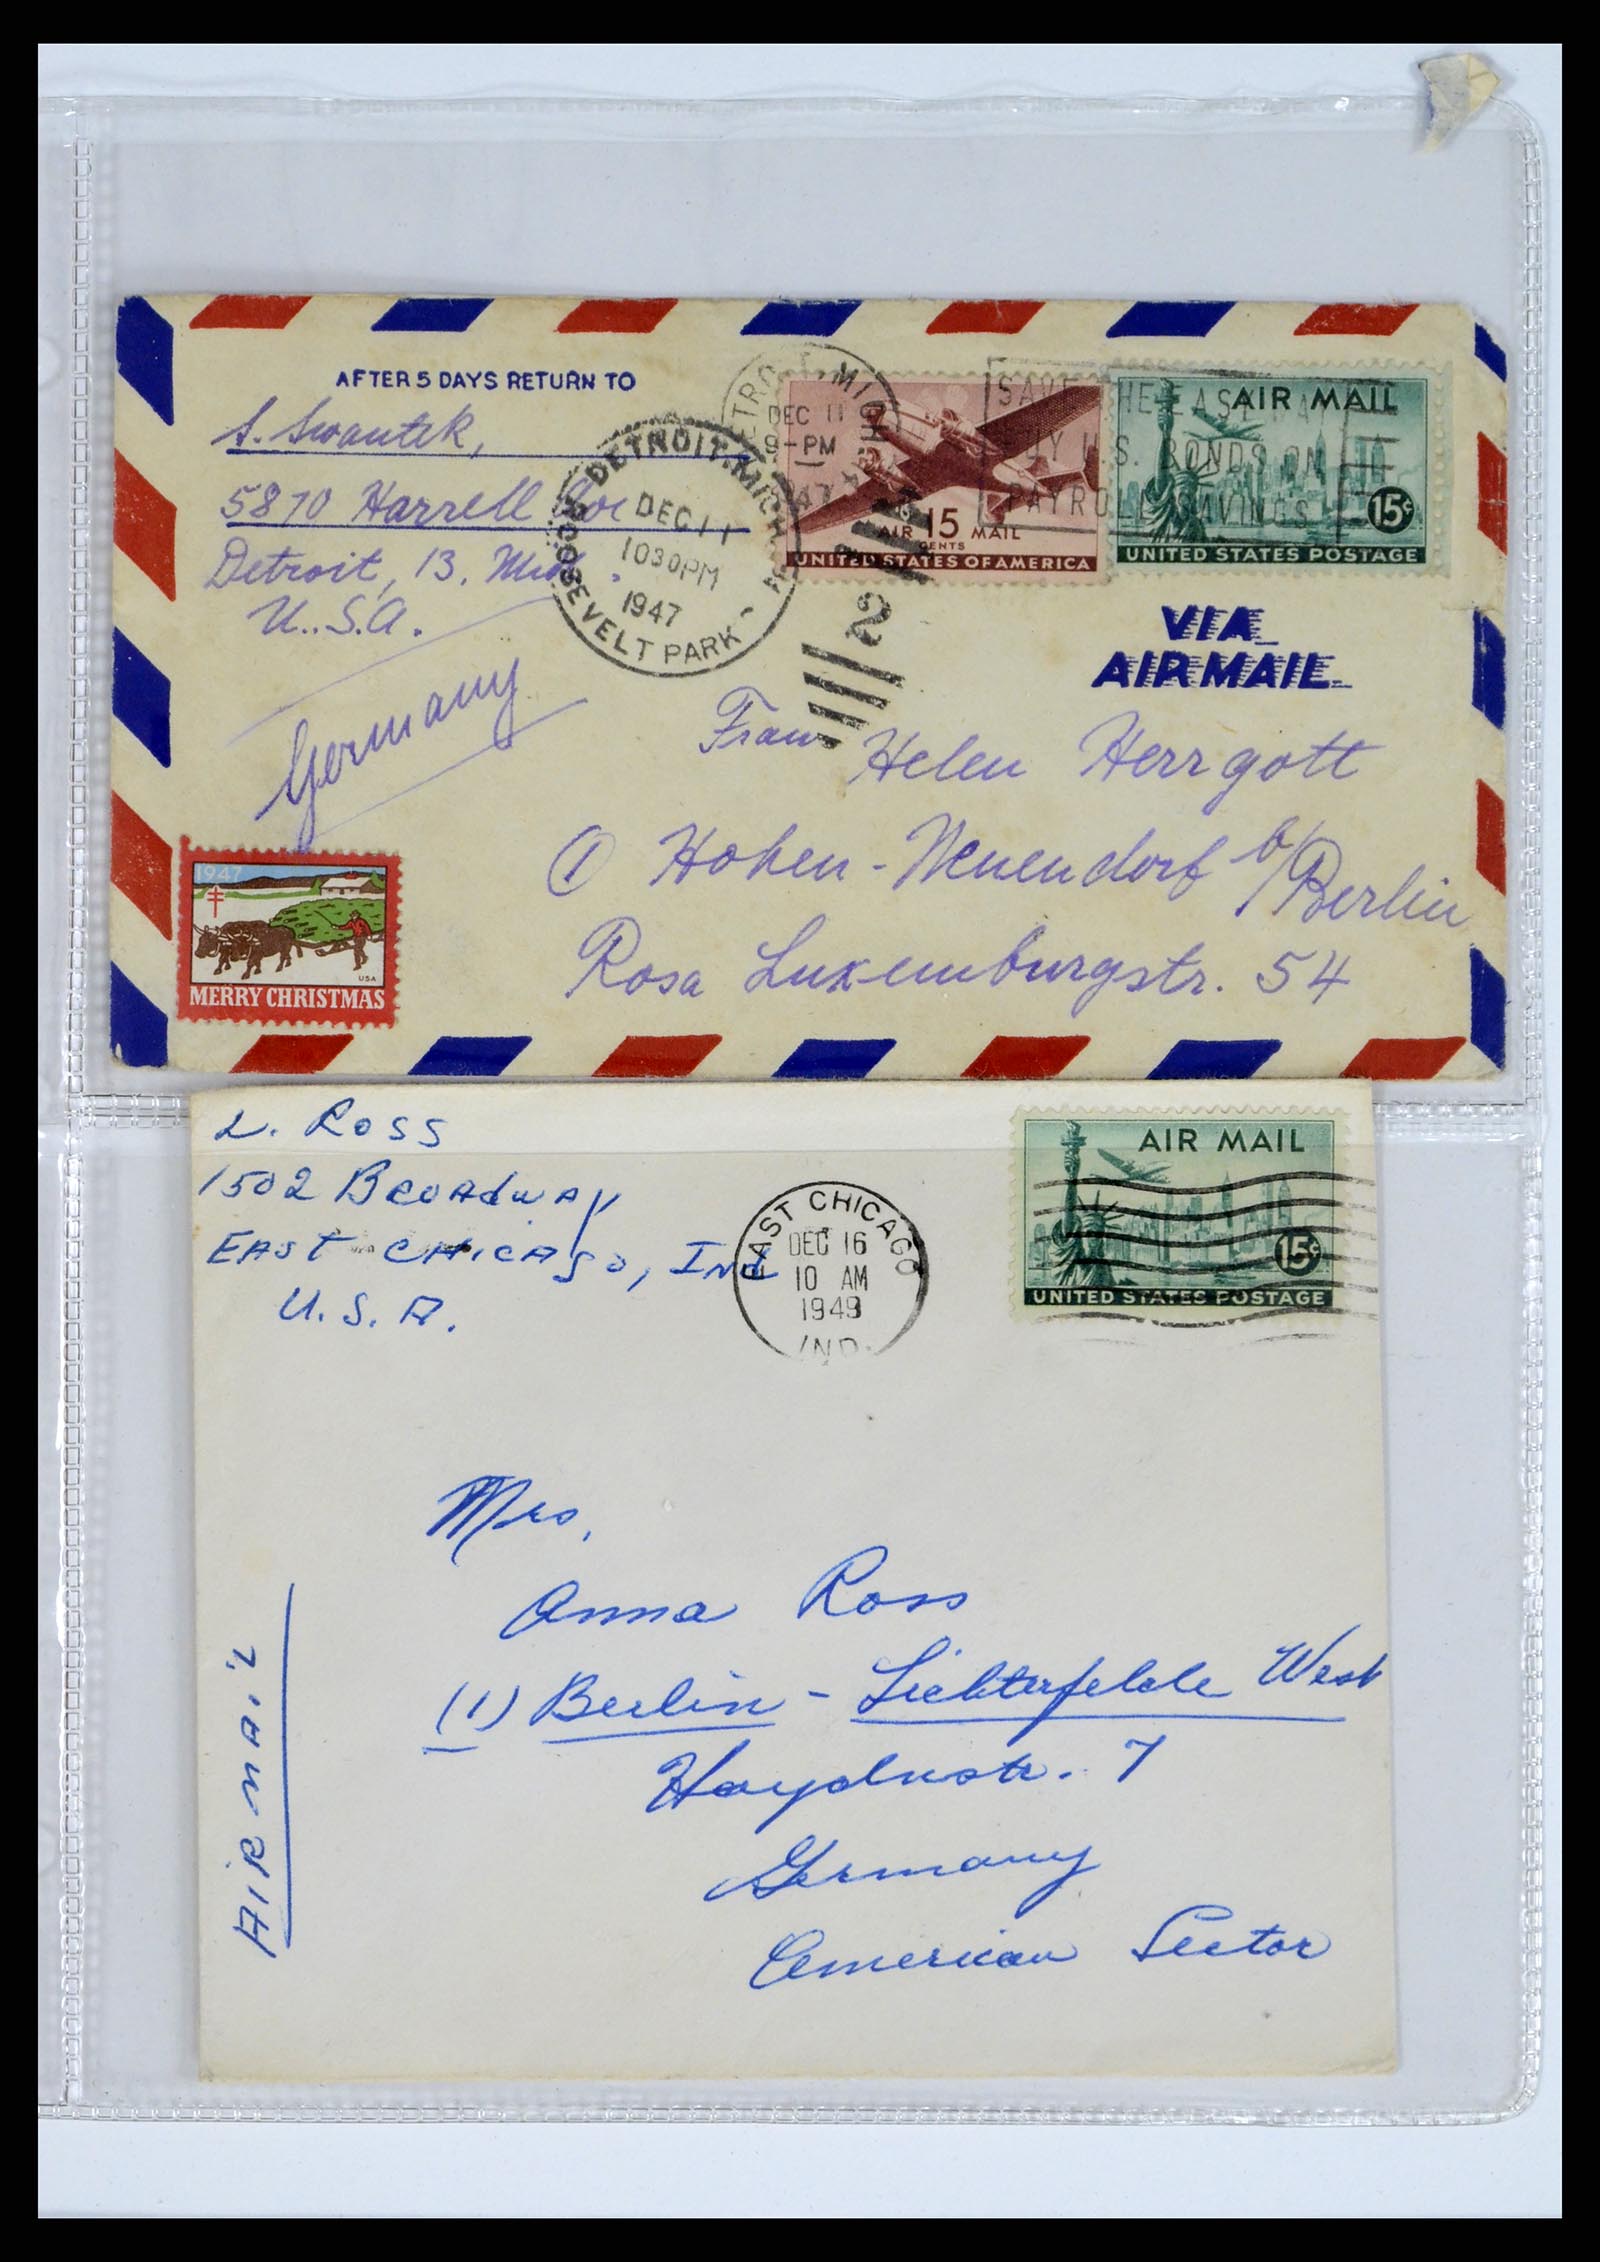 AFTER 5 DAYS RETURN TO
S. Swantek,
5870 Harrell
Detroit, 13, 
U.S.A.
Germany
DETROIT, MICH.
DEC 11
9-PM
1947
DETROIT, MICH.
DEC 11
1030PM
1947
ROOSEVELT PARK
2
SAVE THE EASY WAY
BUY U.S. BONDS ON
PAYROLL SAVINGS
AIR 15 MAIL
CENTS
UNITED STATES OF AMERICA
AIR MAIL
15c
UNITED STATES POSTAGE
VIA
AIR MAIL
Frau Helen Herrgott
① Hohen-Neuendorf b/Berlin
Rosa Luxemburgstr. 54
1947
USA
MERRY CHRISTMAS
L. Ross
1502 Broadway
East Chicago, Ind
U.S.A.
EAST CHICAGO
DEC 16
10 AM
1949
IND.
AIR MAIL
15c
UNITED STATES POSTAGE
Mrs.
Anna Ross
(1) Berlin - Lichterfelde West
Haydnstr. 7
Germany
American Sector
AIR MAIL